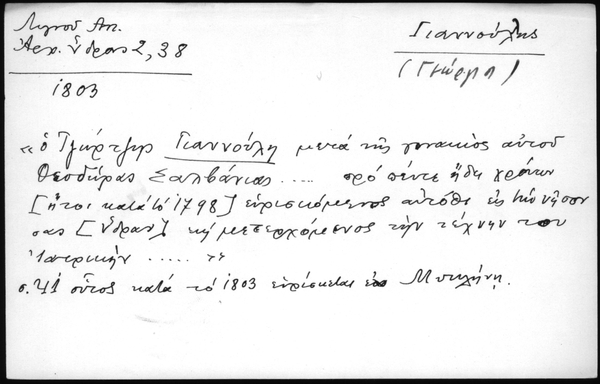 Λιγνού Αντ.
Αρχ. Ύδρας 2, 38
1803
Γιαννούλης
(Γεώργη)
« ὁ Τζώρτζης Γιαννούλη μετά τῆς γυναικός αὐτοῦ
Θεοδώρας Σαλβάνιας ..... πρό πέντε ἤδη χρόνων
[ἤτοι κατά τό 1798] εὑρισκόμενος αὐτόθι εἰς τήν νῆσον
σας [Ὕδραν] κ μετερχόμενος τήν τέχνην του
Ἰατρικήν ..... »
οὗτος κατά τό 1803 εὑρίσκεται Μυτιλήνη.